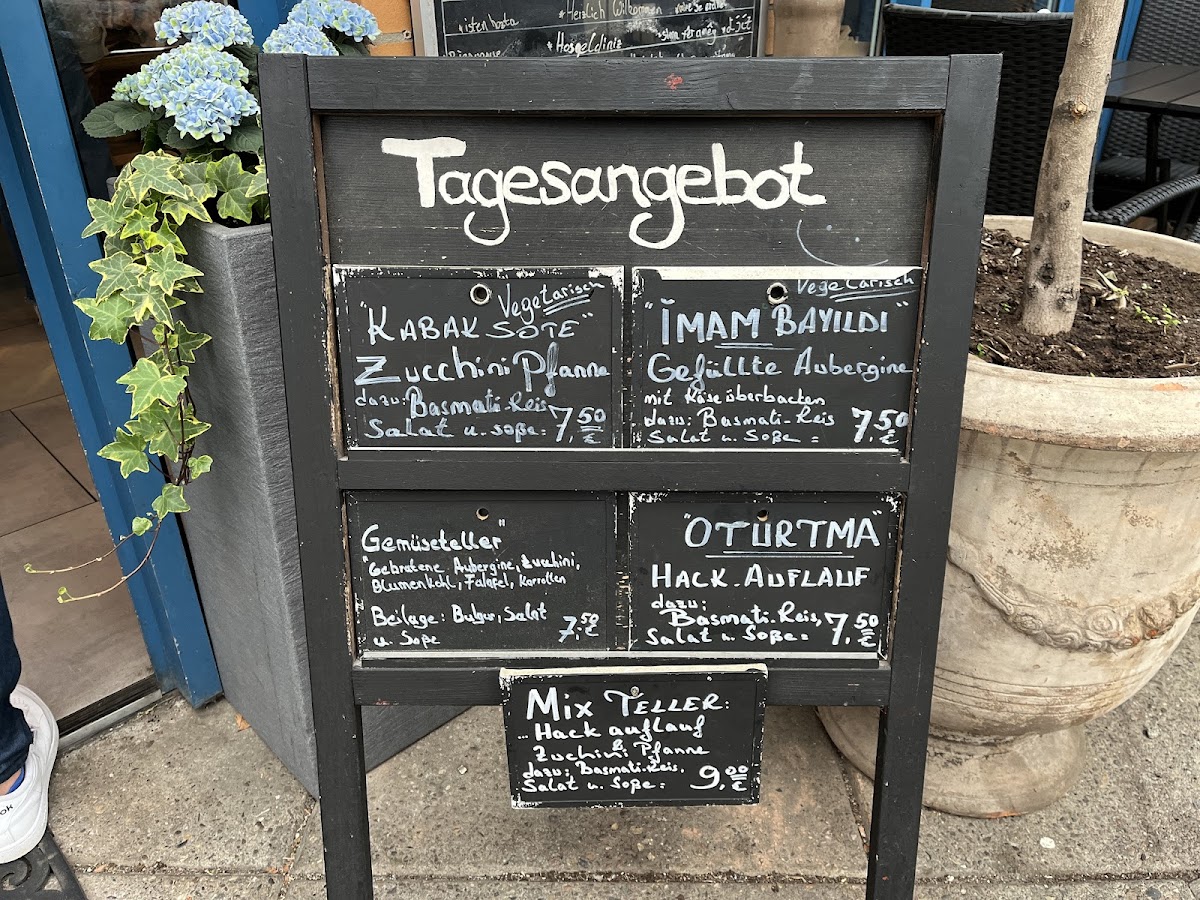 Herzlich Willkommen
Hoşgeldiniz
Tagesangebot
Vegetarisch
"KABAK SOTE"
Zucchini Pfanne
dazu: Basmati-Reis
Salat u. Soße = 7,50 €
Vegetarisch
"İMAM BAYILDI"
Gefüllte Aubergine
mit Käse überbacken
dazu: Basmati-Reis
Salat u. Soße = 7,50 €
Gemüseteller"
"Gebratene Aubergine, Zucchini,
Blumenkohl, Falafel, Karrotten
Beilage: Bulgur, Salat
u. Soße 7,50 €
"OTURTMA"
HACK-AUFLAUF
dazu:
Basmati-Reis,
Salat u. Soße = 7,50 €
MIX TELLER:
... Hack auflauf
&
Zuchini Pfanne
dazu: Basmati-Reis,
Salat u. Soße = 9,00 €